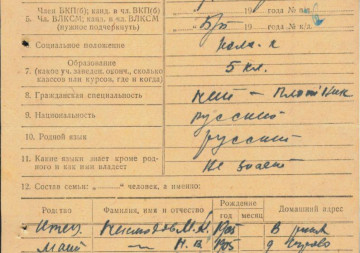 Член ВКП(б); канд. в чл. ВКП(б)
5. Чл. ВЛКСМ; канд. в чл. ВЛКСМ
(нужное подчеркнуть)
б/п 19 года № п/б
19 года № к/л.
6. Социальное положение
Образование
7. (какое уч. заведен. оконч., сколько
классов или курсов, где и когда)
5 кл.
8. Гражданская специальность нет — плотник
9. Национальность русский
10. Родной язык русский
11. Какие языки знает кроме родного и как ими владеет?
не знает
12. Состав семьи: „ “ человек, а именно:
Родство Фамилия, имя и отчество Рождение год месяц Домашний адрес
отец